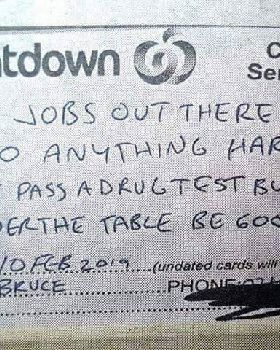 tdown
C
Ser
JOBS OUT THERE
O ANYTHING HAR
PASS A DRUG TEST BU
DER THE TABLE BE GOO
10 FEB 2019 (undated cards will
BRUCE PHONE